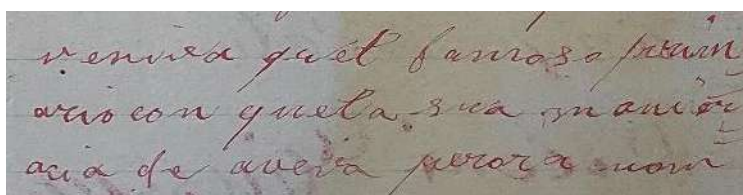 veniva quel famoso prim
ario con quela sua manier
acia de aveva perora non